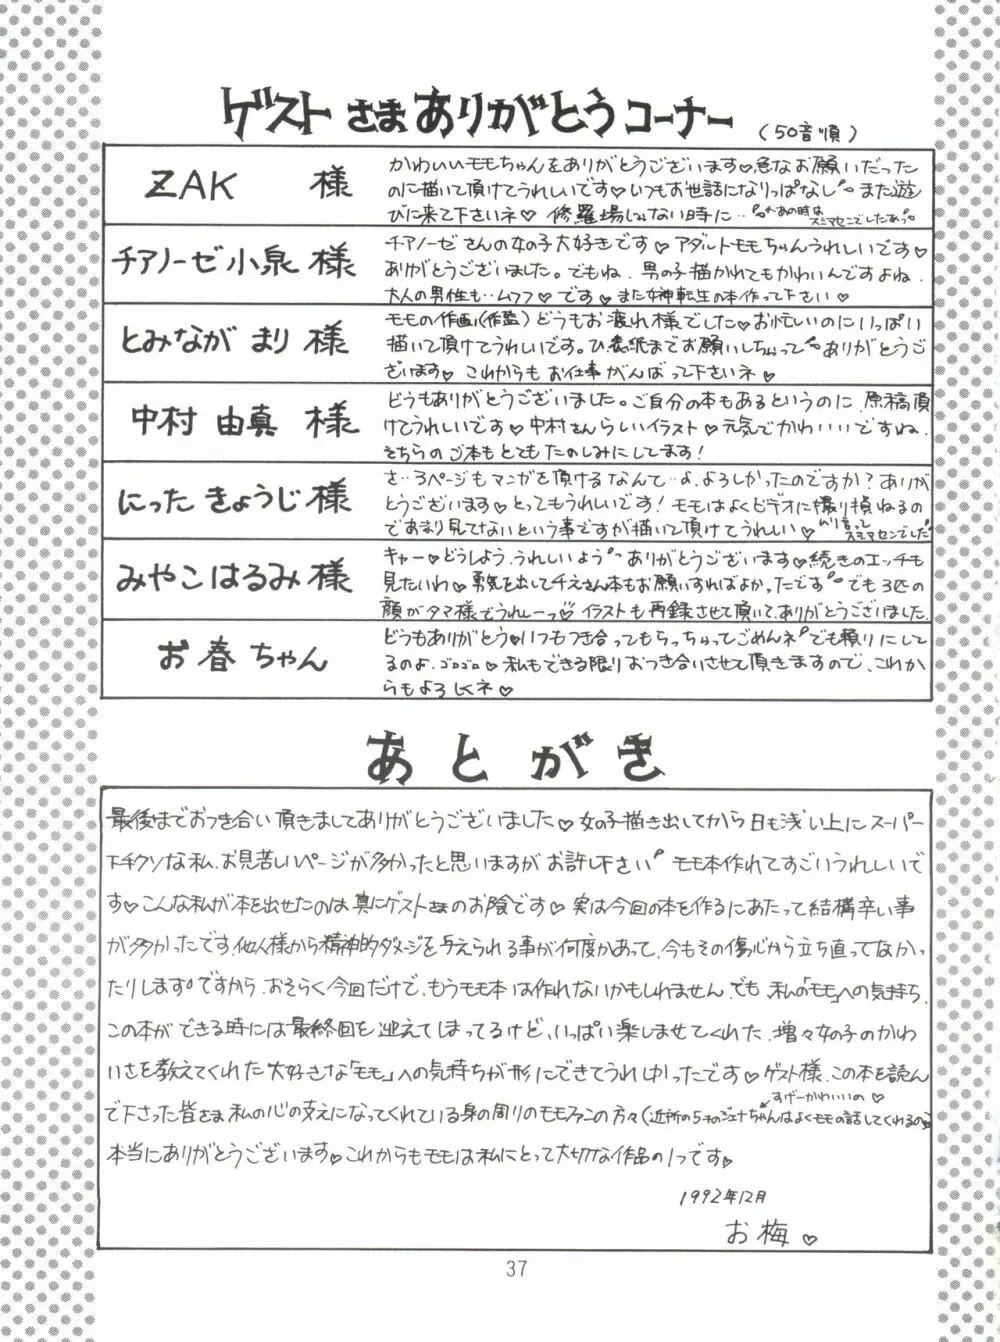 ゲスト さま ありがとう コーナー (50音順)
ZAK 様
かわいいモモちゃんをありがとうございます♡急なお願いだった
のに描いて頂けてうれしいです♡いつもお世話になりっぱなし また遊
びに来て下さいネ♡ 修羅場じゃない時に‥
あの時は
スミマセンでしたあっ
チアノーゼ小泉 様
チアノーゼさんの女の子大好きです♡アダルトモモちゃんうれしいです♡
ありがとうございました。でもね、男の子描かれてもかわいんですよね、
大人の男性も‥ムフフ♡です♡また女神転生の本作って下さい♡
とみなが まり 様
モモの作画(作監)どうもお疲れ様でした♡お忙しいのにいっぱい
描いて頂けてうれしいです。ひ表紙までお願いしちゃって ありがとうご
ざいます♡ これからも お仕事がんばって下さいネ♡
中村 由真 様
どうもありがとうございました。ご自分の本もあるというのに、原稿頂
けてうれしいです♡中村さんらしいイラスト♡元気でかわいいですね、
そちらのご本もとてもたのしみにしてます!
にった きょうじ 様
さ‥3ページもマンガを頂けるなんて‥よ、よろしかったのですか?ありが
とうございます♡とってもうれしいです!モモはよくビデオに撮り損ねるの
であまり見てないという事ですが描いて頂けてうれしい♡
ムリ言って
スミマセンでした
みやこはるみ 様
キャー♡どうしよう、うれしいよう ありがとうございます♡続きのエッチも
見たいわ♡勇気を出してチえさん本もお願いすればよかったです でも3匹の
顔がタマ様でうれしーっ♡イラストも再録させて頂いて、ありがとうございました。
お春ちゃん
どうもありがとう♡いつもつき合ってもらっちゃってごめんネ でも頼りにして
るのよ、ゴロゴロ♡私もできる限りおつき合いさせて頂きますので、これか
らもよろしくネ♡
あとがき
最後までおつき合い頂きましてありがとうございました♡女の子描き出してから日も浅い上にスーパー
下手クソな私、お見苦しいページが多かったと思いますがお許し下さい モモ本作れてすごいうれしいで
す♡こんな私が本を出せたのは真にゲストさまのお陰です♡実は今回の本を作るにあたって結構辛い事
が多かったです。他人様から精神的ダメージを与えられる事が何度かあって、今もその傷心から立ち直ってなかっ
たりします ですから、おそらく今回だけで、もうモモ本は作れないかもしれません。でも、私の「モモ」への気持ち、
この本ができる時には最終回を迎えてしまってるけど、いっぱい楽しませてくれた、増々女の子のかわ
いさを教えてくれた大好きな「モモ」への気持ちが形にできてうれしかったです♡ゲスト様、この本を読ん
すげーかわいいの♡
で下さった皆さま、私の心の支えになってくれている身の周りのモモファンの方々(近所の5才のジュナちゃんはよくモモの話してくれるの)
本当にありがとうございます♡これからもモモは私にとって大切な作品の1つです♡
1992年12月
お梅♡
37